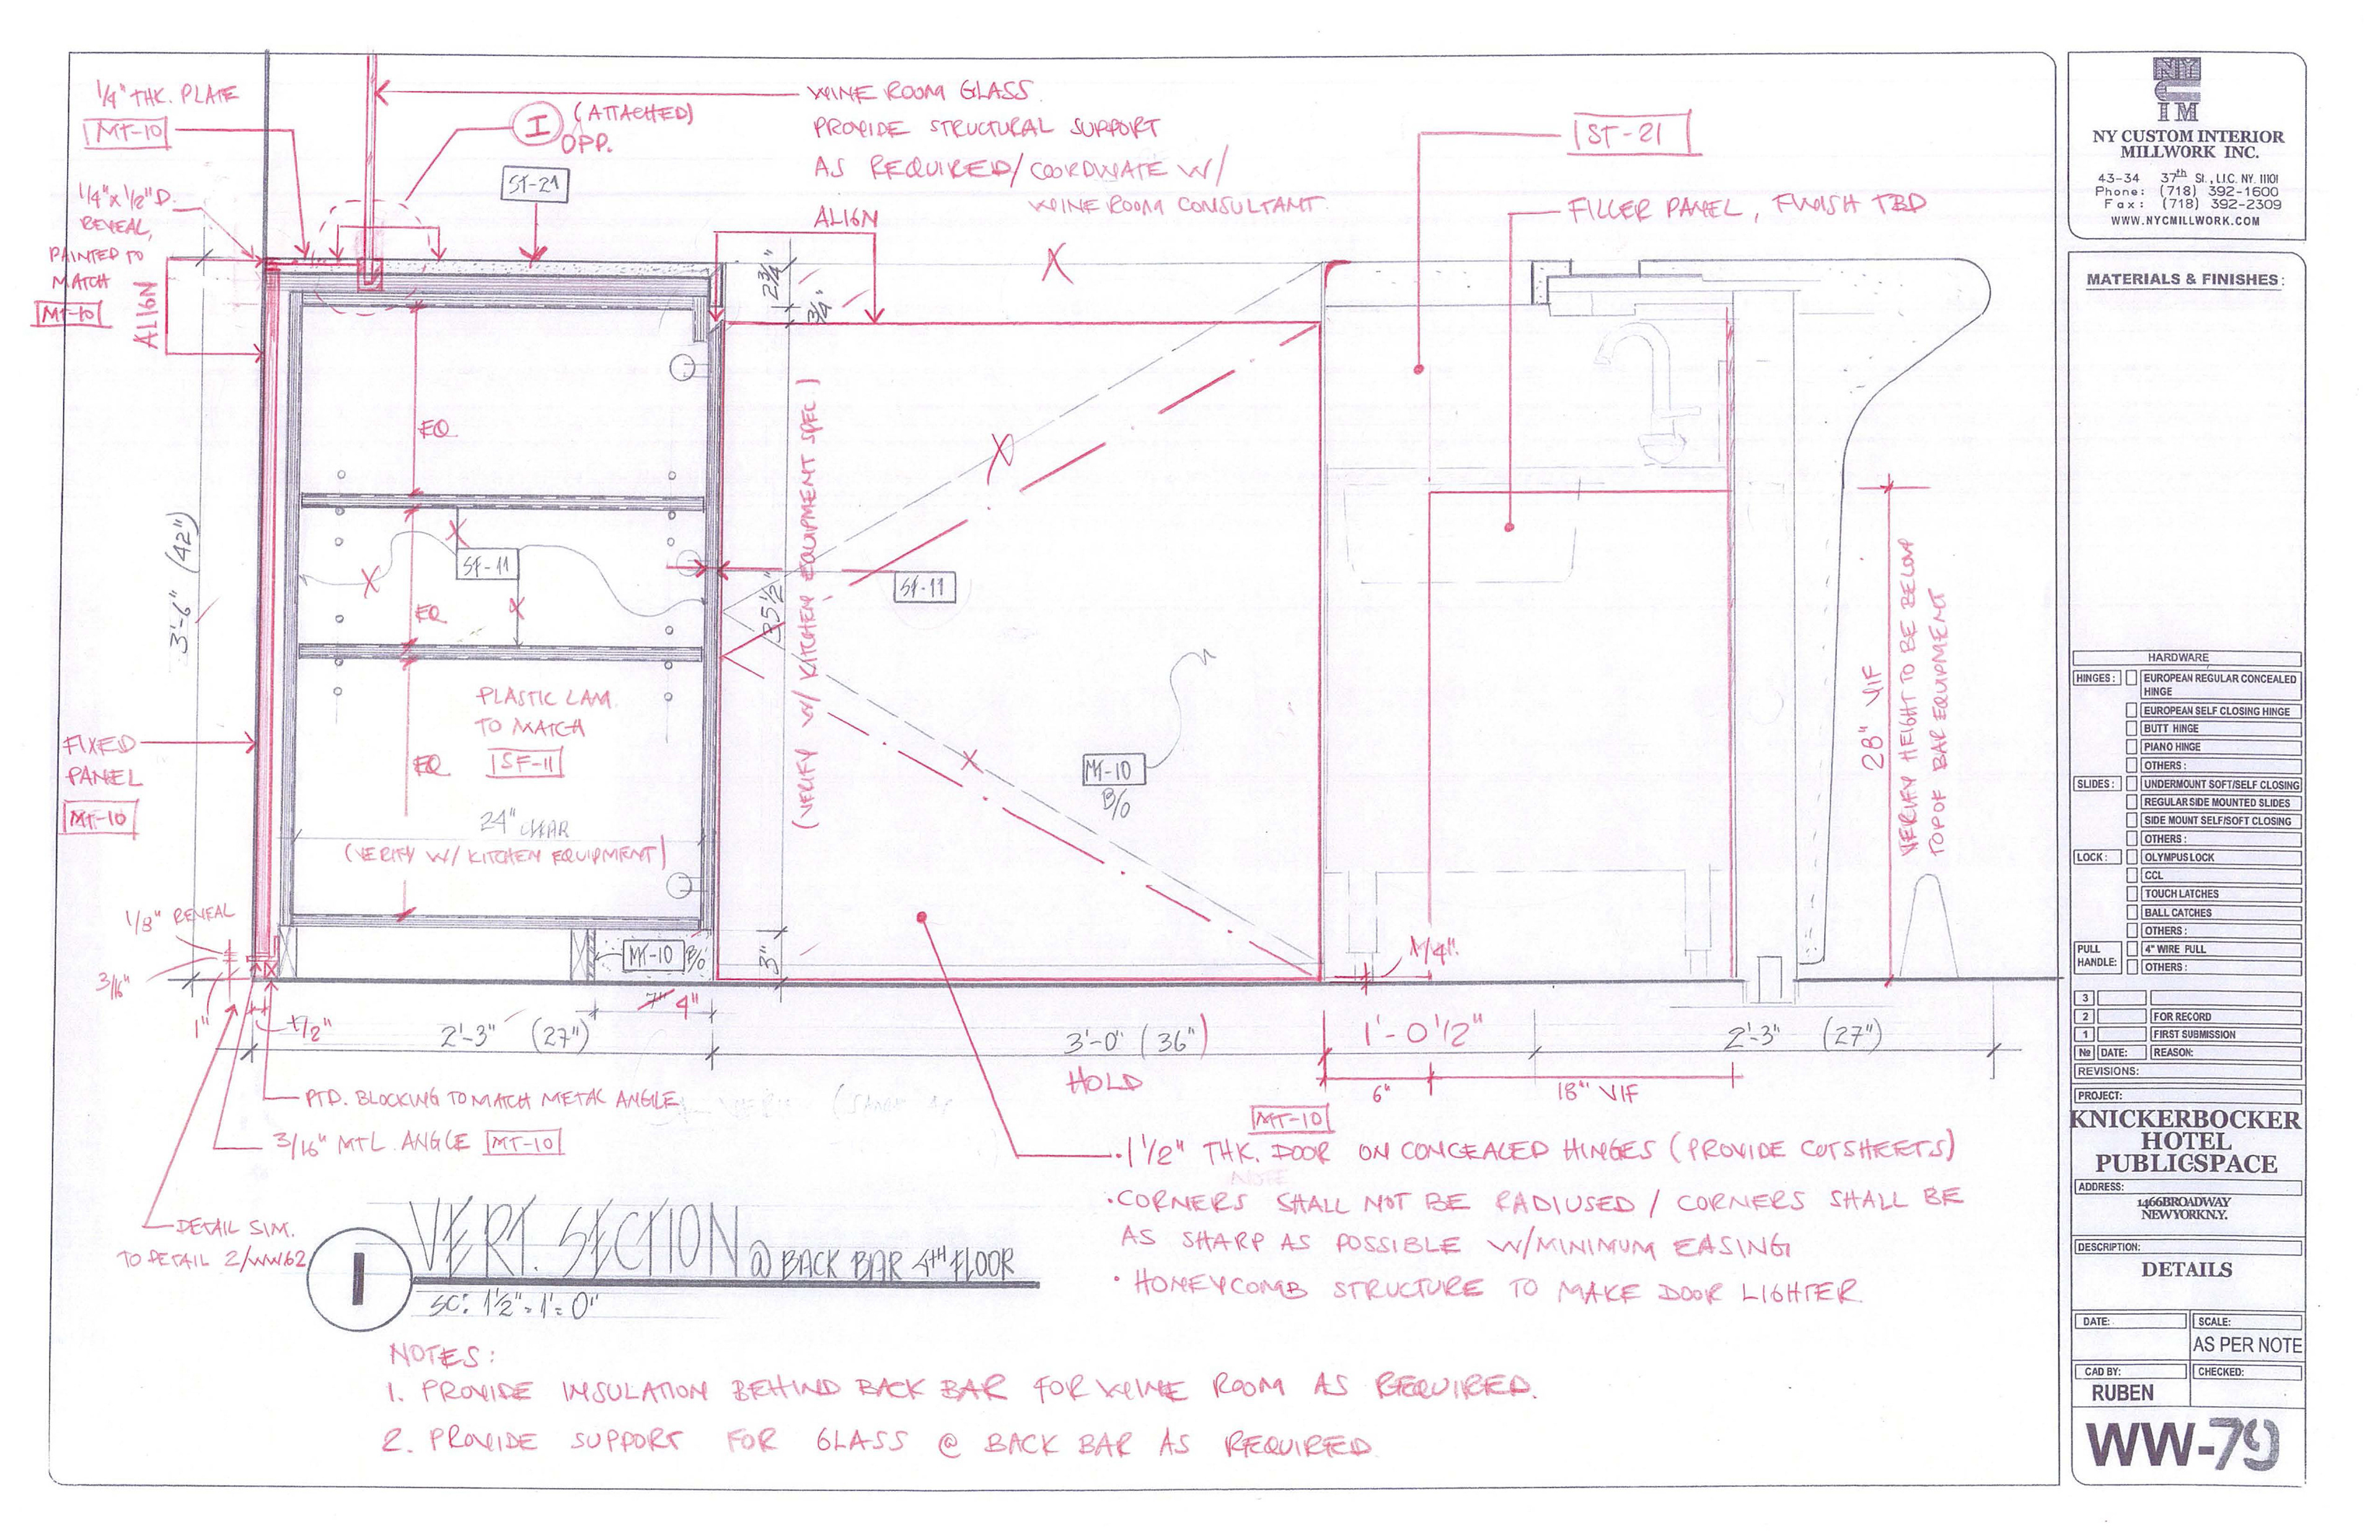 1/4" THK. PLATE
MT-10
1/4" x 1/2" D.
REVEAL,
PAINTED TO
MATCH
MT-10
ALIGN
I (ATTACHED)
OPP.
ST-21
WINE ROOM GLASS.
PROVIDE STRUCTURAL SUPPORT
AS REQUIRED/COORDINATE W/
WINE ROOM CONSULTANT.
ALIGN
ST-21
FILLER PANEL, FINISH TBD
2 3/4"
3/4"
X
EQ
X
3'-6" (42")
X
SF-11
X
X
EQ
35 1/2"
(VERIFY W/ KITCHEN EQUIPMENT SPEC.)
SF-11
PLASTIC LAM.
TO MATCH
SF-11
EQ
24" CLEAR
(VERIFY W/ KITCHEN EQUIPMENT)
FIXED
PANEL
MT-10
X
MT-10
B/O
28" VIF
VERIFY HEIGHT TO BE BELOW
TOP OF BAR EQUIPMENT
1/8" REVEAL
3/16"
1"
1/2"
MT-10 B/O
3"
7" 4"
1/4".
2'-3" (27")
3'-0" (36")
HOLD
1'-0 1/2"
2'-3" (27")
6"
18" VIF
PTD. BLOCKING TO MATCH METAL ANGLE
3/16" MTL. ANGLE MT-10
DETAIL SIM.
TO DETAIL 2/WW62
MT-10
· 1 1/2" THK. DOOR ON CONCEALED HINGES (PROVIDE CUTSHEETS)
NOTE
· CORNERS SHALL NOT BE RADIUSED / CORNERS SHALL BE
AS SHARP AS POSSIBLE W/MINIMUM EASING
· HONEYCOMB STRUCTURE TO MAKE DOOR LIGHTER.
1 VERT. SECTION @ BACK BAR 4TH FLOOR
SC: 1 1/2" = 1'= 0"
NOTES:
1. PROVIDE INSULATION BEHIND BACK BAR FOR WINE ROOM AS REQUIRED.
2. PROVIDE SUPPORT FOR GLASS @ BACK BAR AS REQUIRED.
NY
C
IM
NY CUSTOM INTERIOR
MILLWORK INC.
43-34 37th St., L.I.C. NY. 11101
Phone: (718) 392-1600
Fax: (718) 392-2309
WWW.NYCMILLWORK.COM
MATERIALS & FINISHES:
HARDWARE
HINGES: EUROPEAN REGULAR CONCEALED
HINGE
EUROPEAN SELF CLOSING HINGE
BUTT HINGE
PIANO HINGE
OTHERS:
SLIDES: UNDERMOUNT SOFT/SELF CLOSING
REGULAR SIDE MOUNTED SLIDES
SIDE MOUNT SELF/SOFT CLOSING
OTHERS:
LOCK: OLYMPUS LOCK
CCL
TOUCH LATCHES
BALL CATCHES
OTHERS:
PULL
HANDLE: 4" WIRE PULL
OTHERS:
3
2 FOR RECORD
1 FIRST SUBMISSION
№ DATE: REASON:
REVISIONS:
PROJECT:
KNICKERBOCKER
HOTEL
PUBLICSPACE
ADDRESS:
1466BROADWAY
NEWYORKN.Y.
DESCRIPTION:
DETAILS
DATE: SCALE:
AS PER NOTE
CAD BY: CHECKED:
RUBEN
WW-79